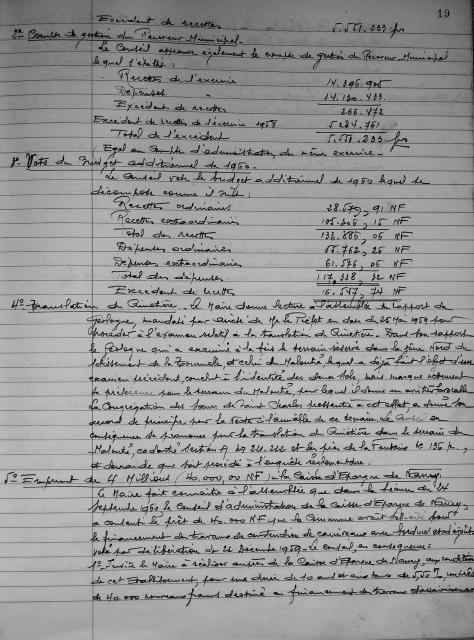 19
Excédent de recettes 5.551.233 frs
2° Compte de gestion du Receveur Municipal.
Le Conseil approuve également le compte de gestion du Receveur Municipal
lequel s'établit :
Recettes de l'exercice 14.396.905
Dépenses " 14.130.433
Excédent de recettes 266.472
Excédent de recettes de l'exercice 1958 5.284.761
Total de l'excédent 5.551.233 frs
Egal au Compte d'administration du même exercice.
3° Vote du Budget additionnel de 1960.
Le Conseil vote le budget additionnel de 1960 lequel se
décompose comme il suit :
Recettes ordinaires 28.579, 91 NF
Recettes extraordinaires 105.305, 15 NF
Total des recettes 133.885, 06 NF
Dépenses ordinaires 55.762, 26 NF
Dépenses extraordinaires 61.576, 06 NF
Total des dépenses 117.338, 32 NF
Excédent de recettes 16.547, 74 NF
4° Translation du Cimetière. Le Maire donne lecture à l'assemblée du rapport du
Géologue, mandaté par arrêté de Mr le Préfet en date du 25 Mai 1959 pour
procéder à l'examen relatif à la translation du Cimetière. Dans son rapport
le Géologue qui a examiné à la fois le terrain réservé dans la zône Nord du
lotissement de la et celui de lequel a déjà fait l'objet d'un
examen précédent, conclut à l'identité des deux sols, mais marque nettement
sa préférence pour le terrain de pour lequel il donne un avis favorable
La Congrégation des soeurs de Saint Charles à cet effet, a donné son
accord de principe pour la vente à l'amiable de ce terrain. Le Conseil en
conséquence se prononce pour la translation du Cimetière dans le terrain de
cadastré Section
et demande que soit procédé à l'enquête réglementaire.
5° Emprunt de 4 Millions (40.000,00 NF) à la Caisse d'Epargne de Nancy.
Le Maire fait connaître à l'assemblée que dans sa séance du 24
Septembre 1960 le Conseil d'administration de la Caisse d'Epargne de Nancy,
a consenti le prêt de 40.000 NF que la Commune avait sollicité pour
le financement de travaux de construction de caniveaux avec bordures et
voté par délibération du 26 Décembre 1959. Le Conseil en conséquence :
1° Invite le Maire à réaliser auprès de la Caisse d'Epargne de Nancy, aux conditions
de cet Etablissement, pour une durée de 10 ans et au taux de 5,50 %, un prêt
de 40.000 nouveaux francs destiné au financement de travaux d'assainissement